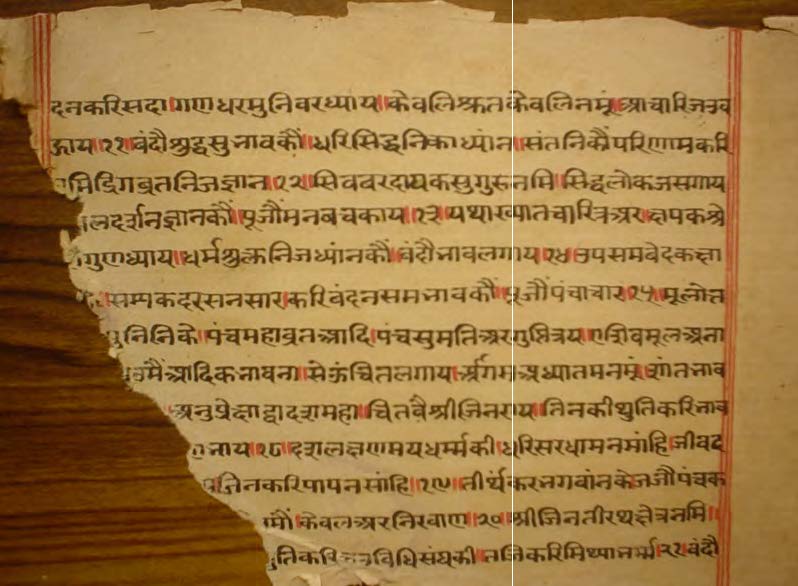 दनकरिसदा।गणधरमुनिवरध्याय।केवलिश्रुतकेवलिनमूं।आचारिजउव
काय।११।वंदौशुद्धसुभावकौं।धरिसिद्धनिकाध्यांन।संतनिकौंपरिणामकरि
मिद्रिगव्रतनिजज्ञान।१२।सिववरदायकसुगुरुनमि।सिद्धलोकजसगाय
लदर्शनज्ञानकौं।पूजौंमनबचकाय।१३।यथाख्यातचारित्रअर।क्षपकश्रे
गुणध्याय।धर्मशुक्लनिजध्यांनकौं।वंदौभावलगाय।१४।उपसमवेदकक्षा
सम्यकदरसनसार।करिवंदनसमभावकौं।पूजौंपंचाचार।१५।मूलोत्त
मुनिनिके।पंचमहाव्रतआदि।पंचसुमतिअरगुप्तित्रय।एशिवमूलअना
आदिकभावना।सेऊंचितलगाय।अध्यातमनमूं।शांतभाव
अनुप्रेक्षाद्वादशमहा।चितवैश्रीजिनराय।तिनकीथुतिकरिभाव
भाय।१८।दशलक्षणमयधर्म्मकी।धरिसरधामनमांहि।जीवद
जिनकरिपापनसांहि।१९।तीर्थंकरभगवांनकेजजौंपंचक
केवलअरनिरवाण।२०।श्रीजिनतीरथक्षेत्रनमि।
तिकरि विधिसंघकी।तजिकरिमिथ्याभर्म्म।२१।वंदौ